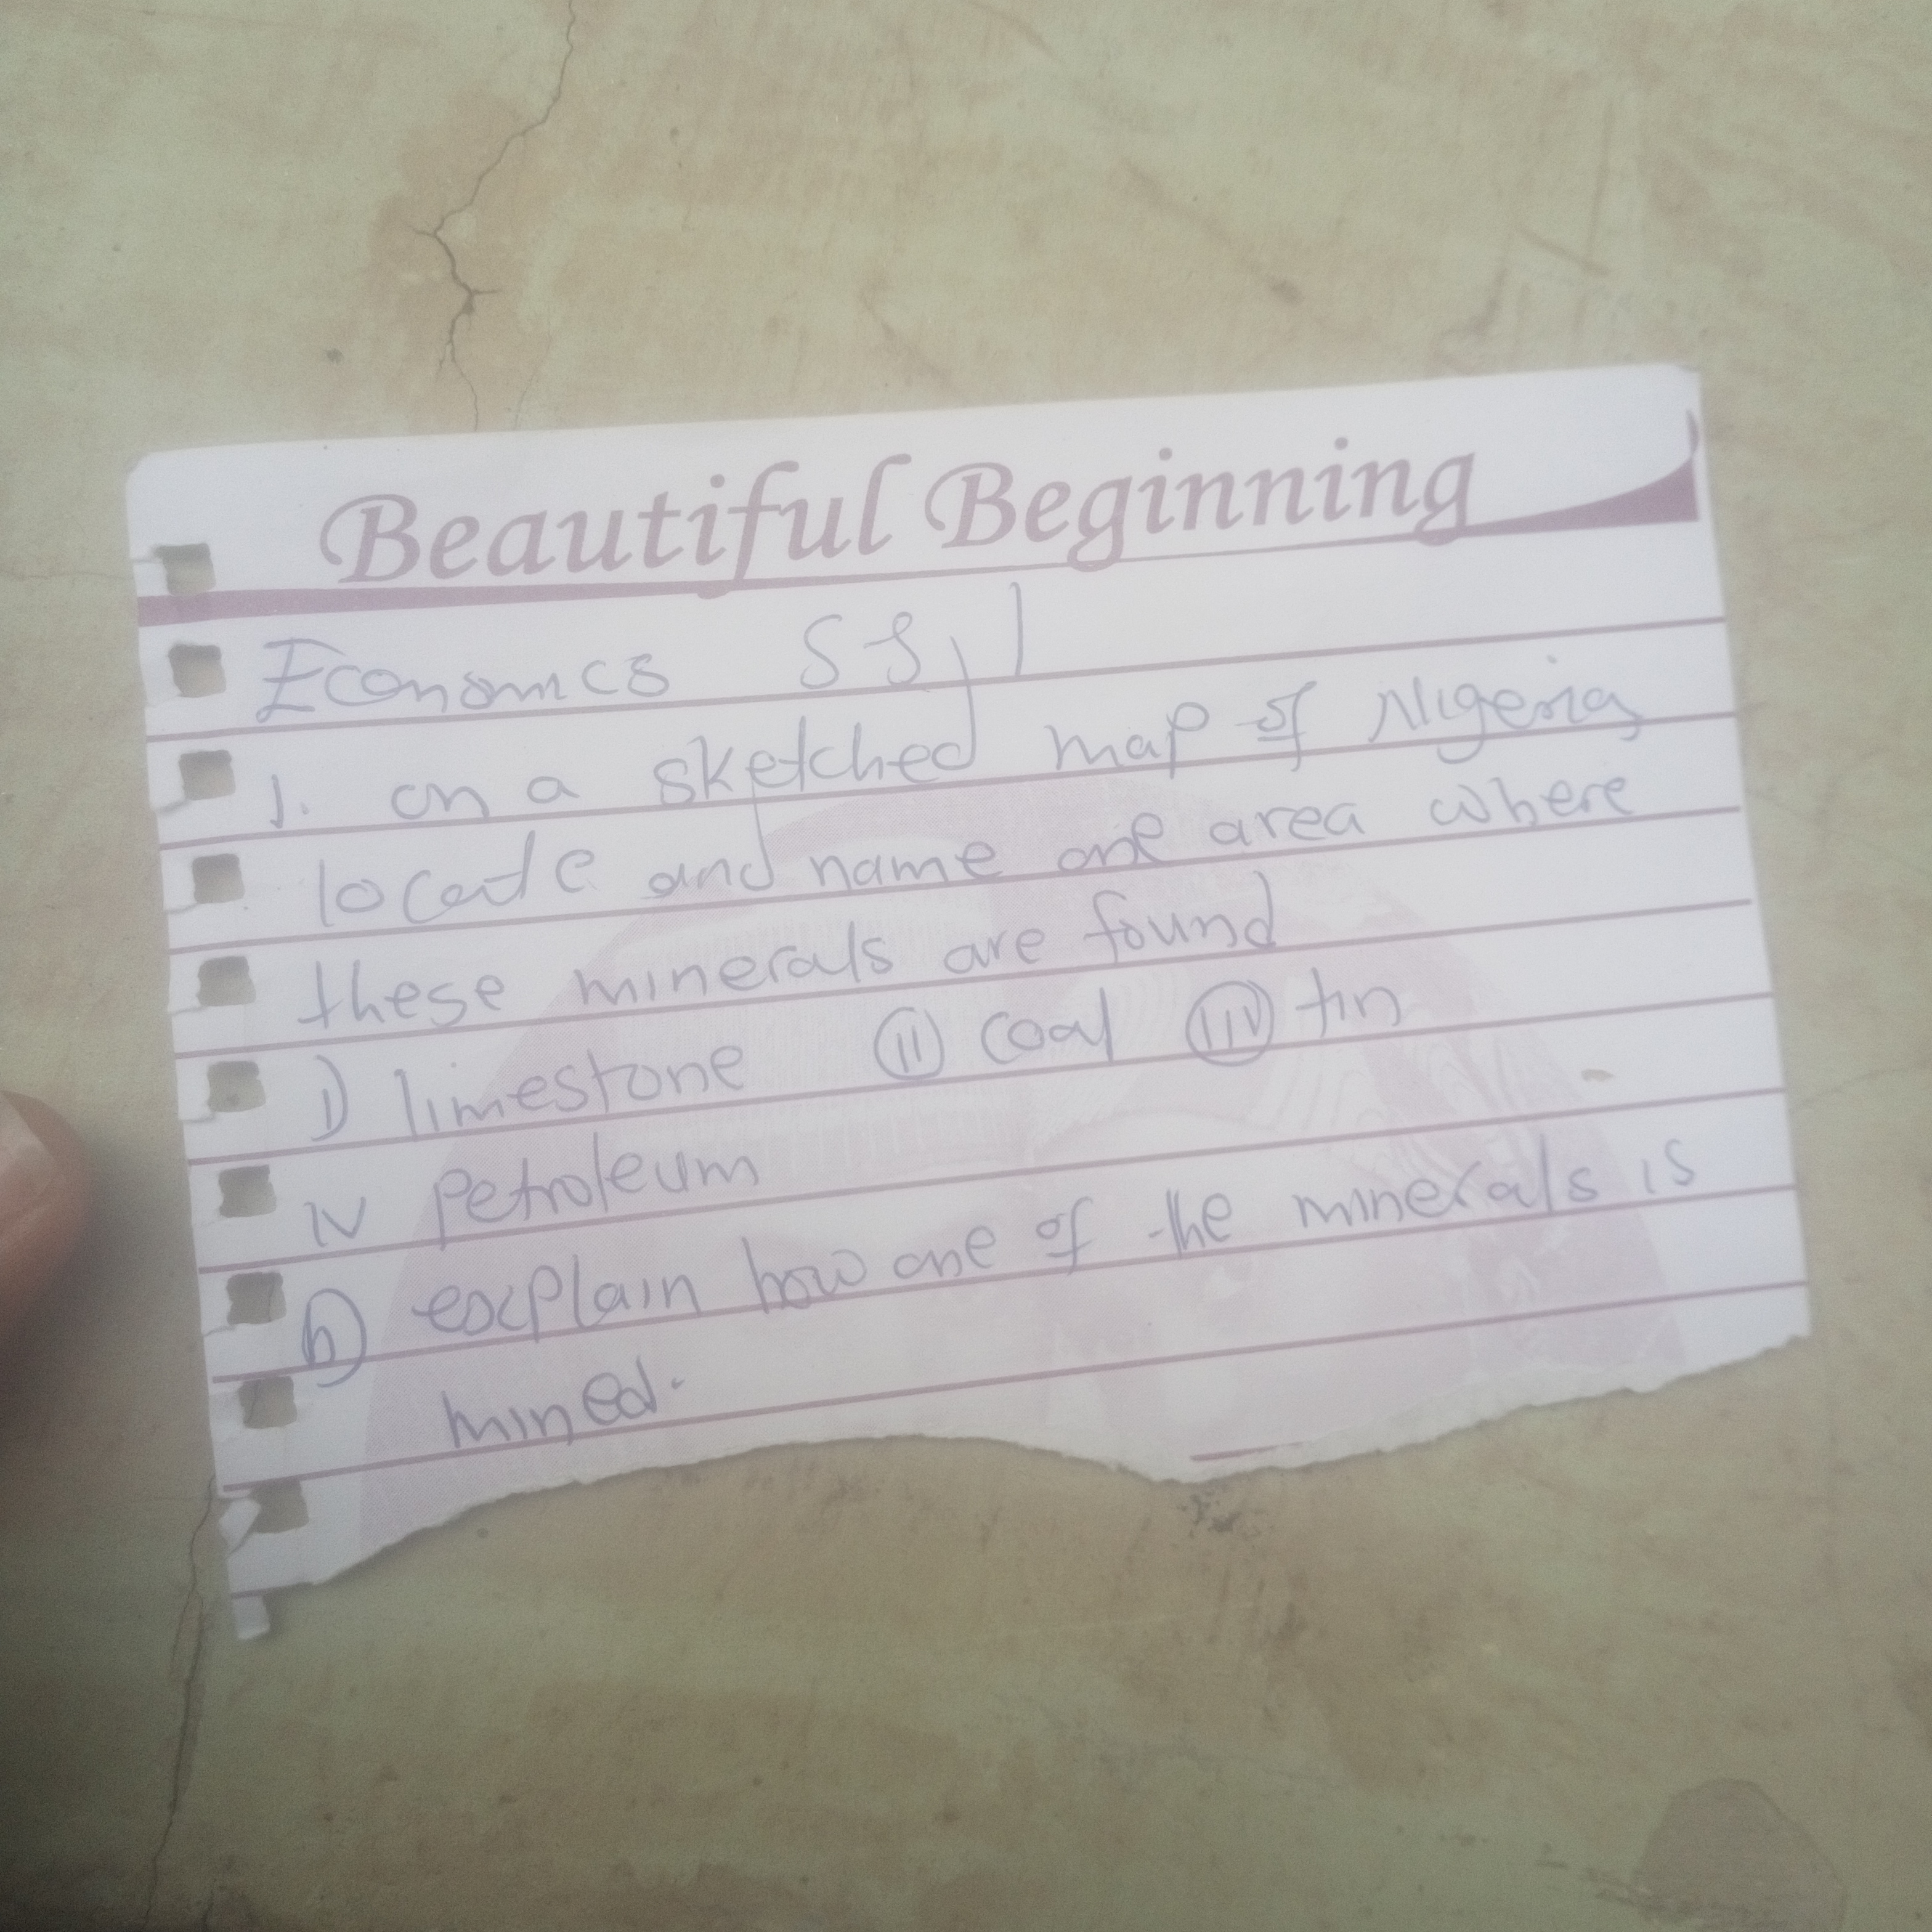 Beautiful Beginning
Economics SS, 1
1. on a sketched map of Nigeria
locate and name one area where
these minerals are found
i) limestone (ii) coal (iii) tin
iv petroleum
b) explain how one of the minerals is
mined.